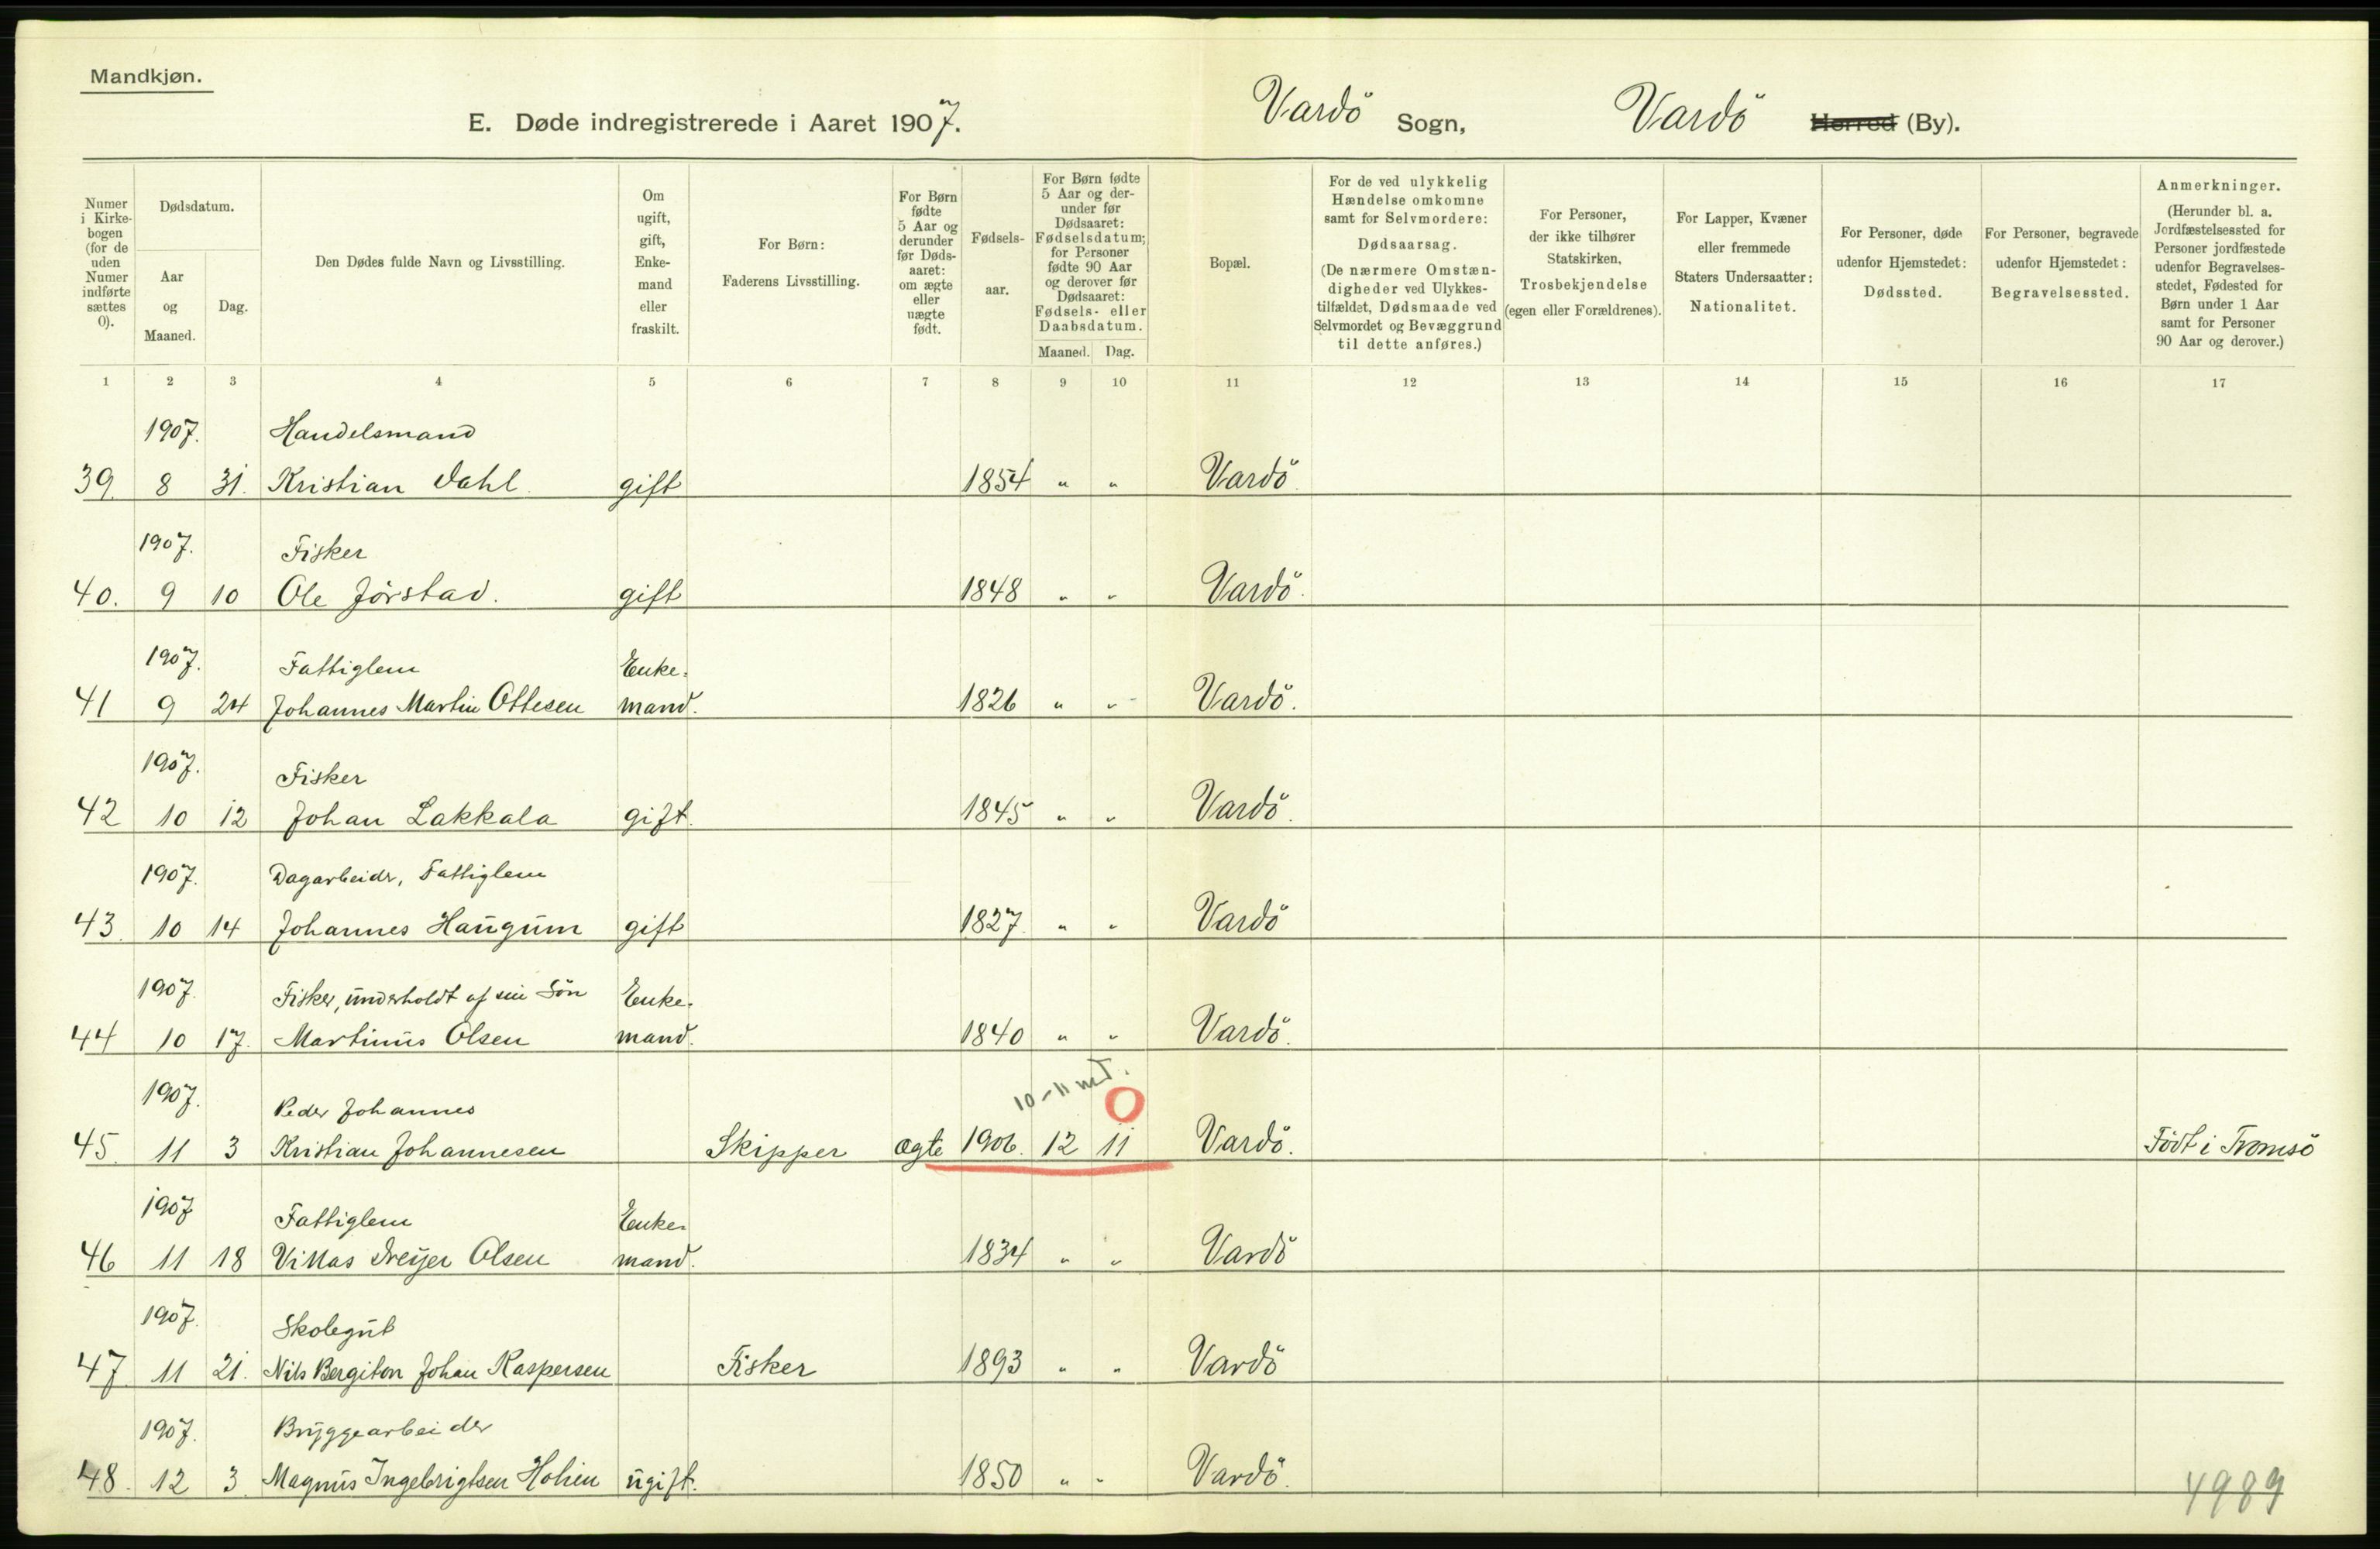 Mandkjøn.
E. Døde indregistrerede i Aaret 1907. Vardö Sogn, Vardö Herred (By).
Numer i Kirke-bogen (for de uden Numer indførte sættes 0).
Dødsdatum.
Aar og Maaned.
Dag.
Den Dødes fulde Navn og Livsstilling.
Om ugift, gift, Enke-mand eller fraskilt.
For Børn: Faderens Livsstilling.
For Børn fødte 5 Aar og derunder før Døds-aaret: om ægte eller uægte født.
Fødsels-aar.
For Børn fødte 5 Aar og der-under før Dødsaaret: Fødselsdatum; for Personer fødte 90 Aar og derover før Dødsaaret: Fødsels- eller Daabsdatum.
Maaned. Dag.
Bopæl.
For de ved ulykkelig Hændelse omkomne samt for Selvmordere: Dødsaarsag. (De nærmere Omstæn-digheder ved Ulykkes-tilfældet, Dødsmaade ved Selvmordet og Bevæggrund til dette anføres.)
For Personer, der ikke tilhører Statskirken, Trosbekjendelse (egen eller Forældrenes).
For Lapper, Kvæner eller fremmede Staters Undersaatter: Nationalitet.
For Personer, døde udenfor Hjemstedet: Dødssted.
For Personer, begravede udenfor Hjemstedet: Begravelsessted.
Anmerkninger. (Herunder bl. a. Jordfæstelsessted for Personer jordfæstede udenfor Begravelses-stedet, Fødested for Børn under 1 Aar samt for Personer 90 Aar og derover.)
1 2 3 4 5 6 7 8 9 10 11 12 13 14 15 16 17
1907. Handelsmand
39. 8 31. Kristian Dahl gift 1854 " " Vardö.
1907. Fisker
40. 9 10 Ole Jörstad. gift 1848 " " Vardö.
1907. Fattiglem Enke-
41 9 24 Johannes Martin Ottesen mand. 1826 " " Vardö.
1907. Fisker
42 10 12 Johan Lakkala gift. 1845 " " Vardö.
1907. Dagarbeider, Fattiglem
43. 10 14 Johannes Haugum gift 1827. " " Vardö
1907. Fisker, underholdt af sin Sön Enke-
44 10 17. Martinus Olsen mand. 1840 " " Vardö.
10-11 md.
1907. Peder Johannes 0
45. 11 3 Kristian Johannesen Skipper ægte 1906. 12 11 Vardö. Födt i Tromsö
1907 Fattiglem Enke-
46 11 18 Dreyer Olsen mand. 1834 " " Vardö
1907. Skolegut
47. 11 21. Nils Bergiton Johan Kaspersen Fisker 1893 " " Vardö
1907. Bryggearbeider
48. 12 3. Magnus Ingebrigtsen ugift. 1850 " " Vardö.
4989